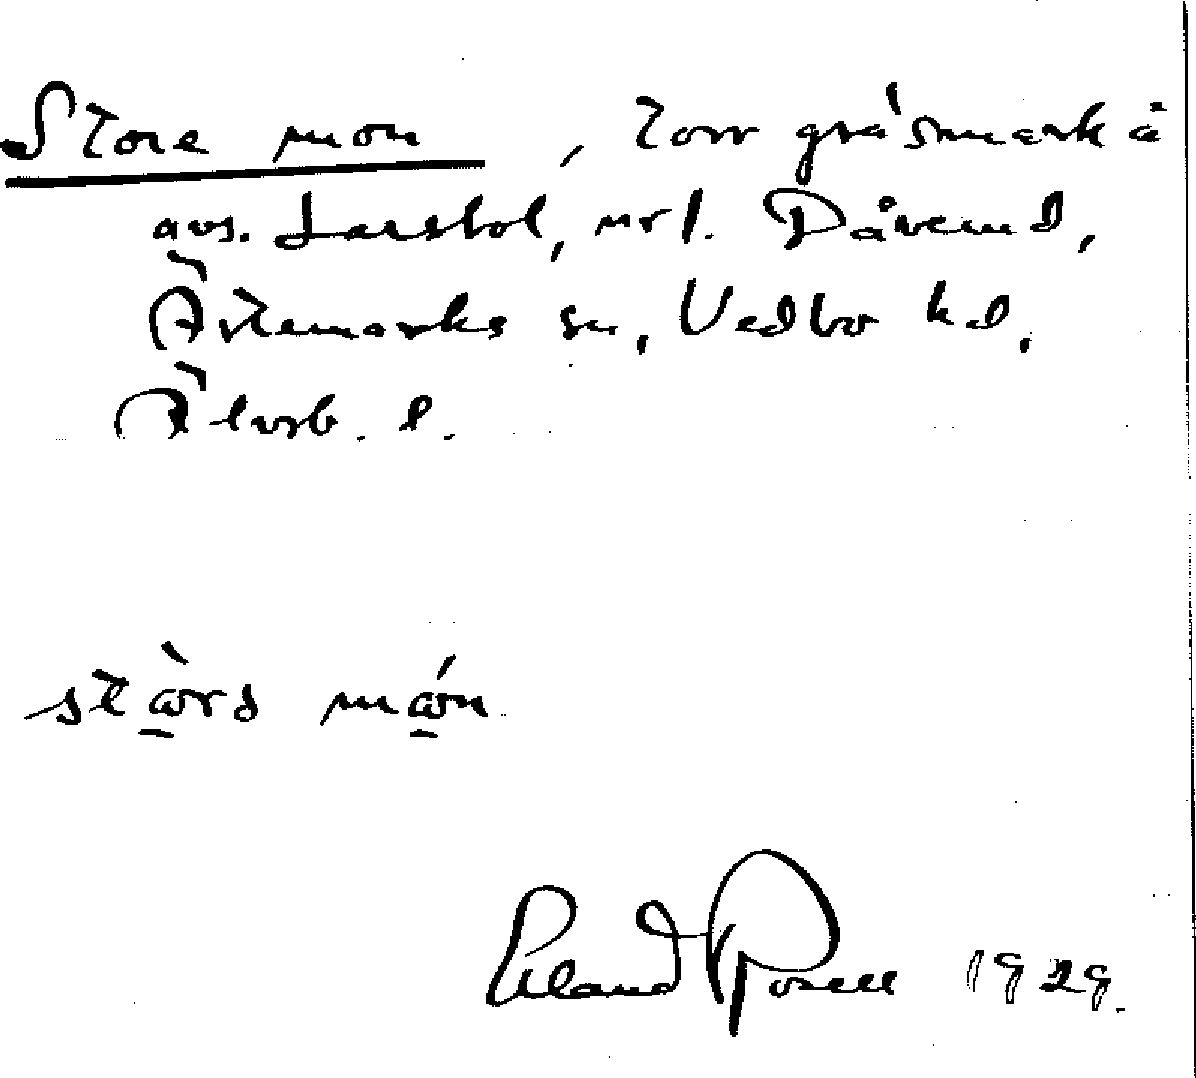 Store mon, torr gräsmark å
avs. Larsbol, mrl. Dåverud,
Ärtemarks sn, Vedbo hd,
Älvsb. l.
stὼ̱rə mώ̱n
Erland Rosell 1929.